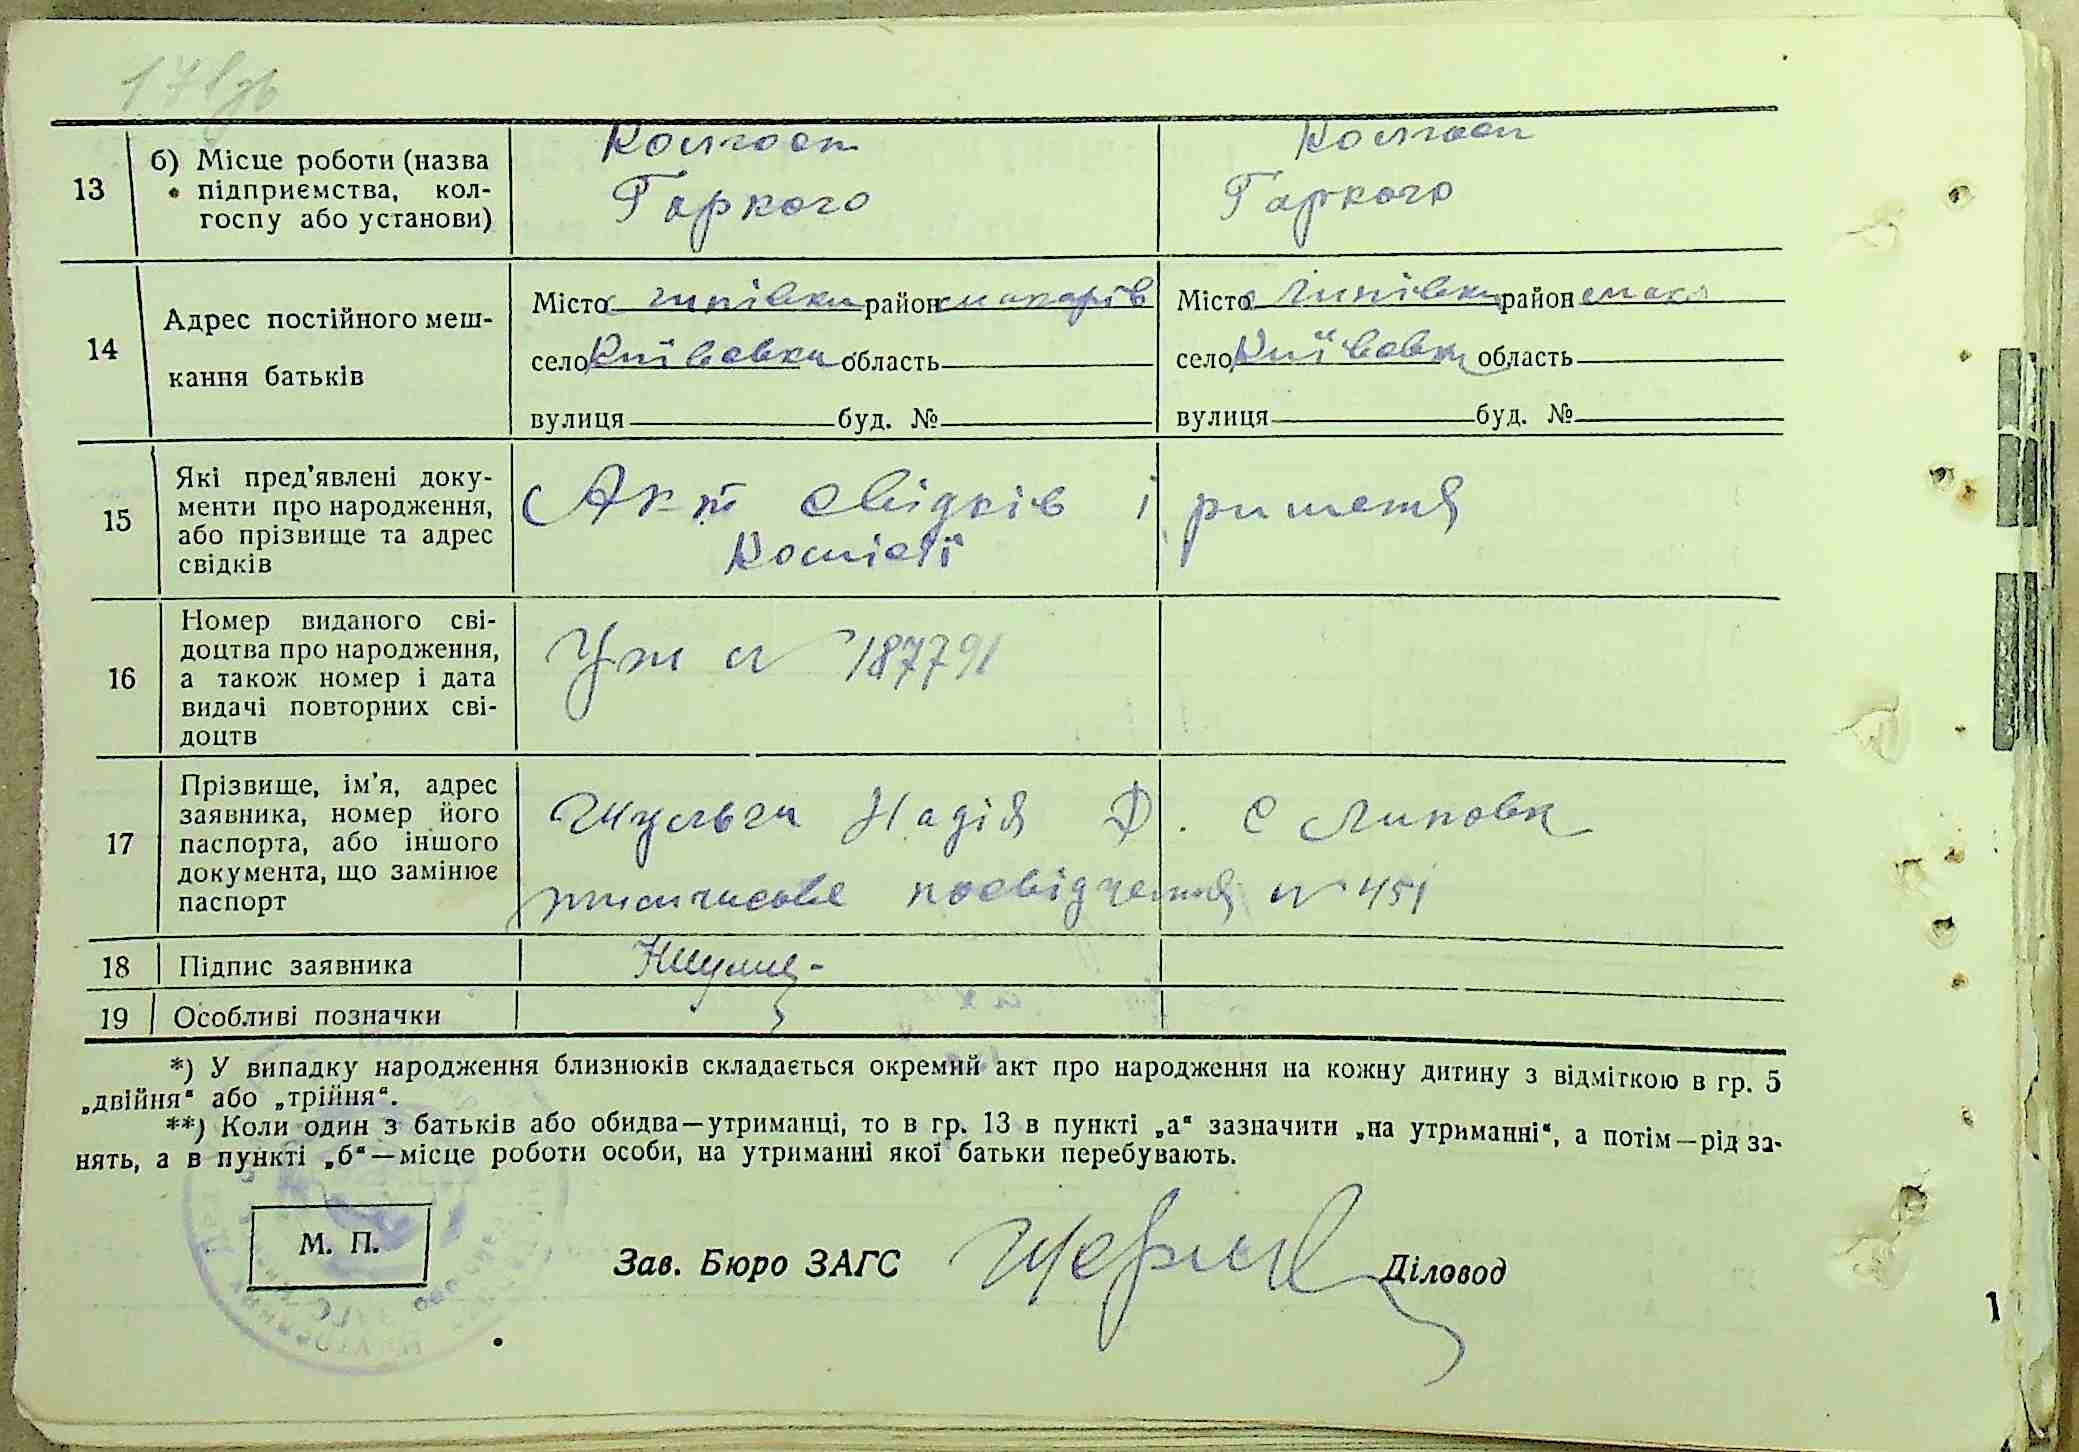 13
б) Місце роботи (назва
підприємства, кол-
госпу або установи)
Колгосп
Горкого
Колгосп
Горкого
14
Адрес постійного меш-
кання батьків
Місто с Липівка район макарів
село Київська область
вулиця буд. №
Місто с Липівка район мака
село Київська область
вулиця буд. №
15
Які пред'явлені доку-
менти про народження,
або прізвище та адрес
свідків
Акт свідків і ришення
Комісії
16
Номер виданого сві-
доцтва про народження,
а також номер і дата
видачі повторних сві-
доцтв
№ 187791
17
Прізвище, ім'я, адрес
заявника, номер його
паспорта, або іншого
документа, що замінює
паспорт
Шульга Надія Ф. с Липовка
тимчасове посвідчення № 451
18
Підпис заявника
19
Особливі позначки
*) У випадку народження близнюків складається окремий акт про народження на кожну дитину з відміткою в гр. 5
„двійня“ або „трійня“.
**) Коли один з батьків або обидва—утриманці, то в гр. 13 в пункті „а“ зазначити „на утриманні“, а потім—рід за-
нять, а в пункті „б“—місце роботи особи, на утриманні якої батьки перебувають.
М. П.
Зав. Бюро ЗАГС
Діловод
1